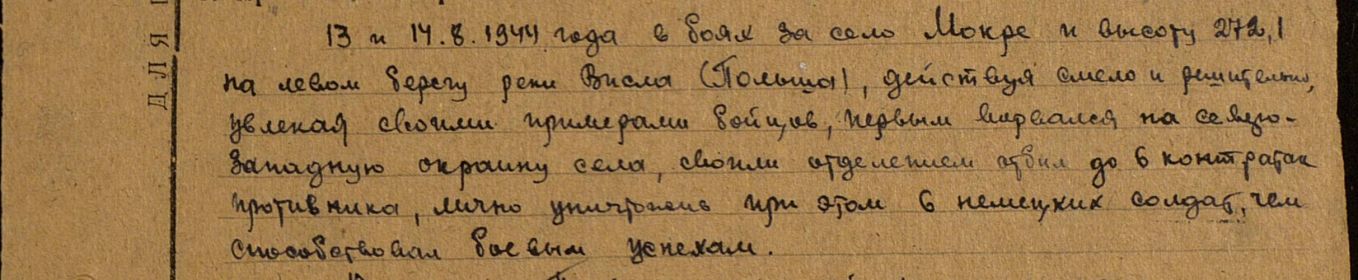 ДЛЯ
13 и 14.8.1944 года в боях за село Мокре и высоту 272,1
на левом берегу реки Висла (Польша), действуя смело и решительно,
увлекая своими примерами бойцов, первым ворвался на северо-
западную окраину села, своим отделением отбил до 6 контратак
противника, лично уничтожив при этом 6 немецких солдат, чем
способствовал боевым успехам.